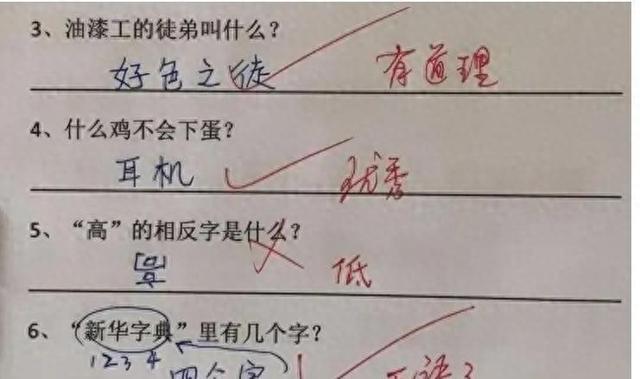 3、油漆工的徒弟叫什么？
好色之徒 有道理
4、什么鸡不会下蛋？
耳机 优秀
5、“高”的相反字是什么？
低
6、“新华字典”里有几个字？
1 2 3 4 四个字